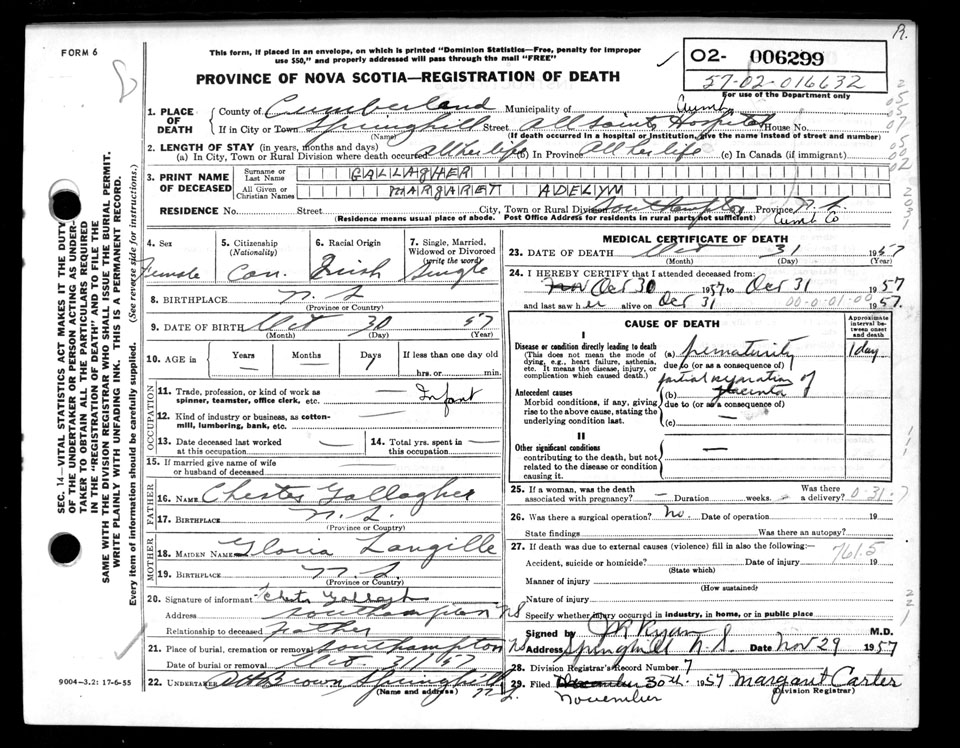 FORM 6
This form, if placed in an envelope, on which is printed "Dominion Statistics—Free, penalty for improper
use $50," and properly addressed will pass through the mail "FREE"
PROVINCE OF NOVA SCOTIA—REGISTRATION OF DEATH
02- 006299
57-02-016632
For use of the Department only
1. PLACE OF DEATH
County of Cumberland Municipality of Cumb.
If in City or Town Springhill Street All Saints Hospital House No.
(Name) (If death occurred in a hospital or institution, give the name instead of street and number)
2. LENGTH OF STAY (in years, months and days)
(a) In City, Town or Rural Division where death occurred all her life (b) In Province All her life (c) In Canada (if immigrant)
3. PRINT NAME OF DECEASED
Surname or Last Name GALLAGHER
All Given or Christian Names MARGARET ADELYM
RESIDENCE No. Street City, Town or Rural Division Southampton Province N.S.
(Residence means usual place of abode. Post Office Address for residents in rural parts not sufficient) Cumb Co
4. Sex Female
5. Citizenship (Nationality) Can.
6. Racial Origin Irish
7. Single, Married, Widowed or Divorced (write the word) Single
8. BIRTHPLACE N.S.
(Province or Country)
9. DATE OF BIRTH Oct 30 57
(Month) (Day) (Year)
10. AGE in Years — Months — Days 1 If less than one day old
hrs. or min.
OCCUPATION
11. Trade, profession, or kind of work as spinner, teamster, office clerk, etc. Infant
12. Kind of industry or business, as cotton-mill, lumbering, bank, etc. —
13. Date deceased last worked at this occupation —
14. Total yrs. spent in this occupation —
15. If married give name of wife or husband of deceased
FATHER
16. NAME Chester Gallagher
17. BIRTHPLACE N.S.
(Province or Country)
MOTHER
18. MAIDEN NAME Gloria Langille
19. BIRTHPLACE N.S.
(Province or Country)
20. Signature of informant Chester Gallagher
Address Southampton NS
Relationship to deceased father
21. Place of burial, cremation or removal Southampton NS
Date of burial or removal Oct. 31/57
22. UNDERTAKER Brown Springhill
(Name and address)
MEDICAL CERTIFICATE OF DEATH
23. DATE OF DEATH Oct 31 1957
(Month) (Day) (Year)
24. I HEREBY CERTIFY that I attended deceased from:
Oct 30 1957 to Oct 31 1957
and last saw her alive on Oct 31 1957.
00-0-01-00
CAUSE OF DEATH
Approximate interval between onset and death
I
Disease or condition directly leading to death
(This does not mean the mode of dying, e.g., heart failure, asthenia, etc. It means the disease, injury, or complication which caused death.)
(a) prematurity 1 day
due to (or as a consequence of)
Antecedent causes
Morbid conditions, if any, giving rise to the above cause, stating the underlying condition last.
partial separation of
(b) placenta
due to (or as a consequence of)
(c) —
II
Other significant conditions
contributing to the death, but not related to the disease or condition causing it. —
25. If a woman, was the death associated with pregnancy? — Duration weeks. Was there a delivery?
26. Was there a surgical operation? No. Date of operation 19
State findings Was there an autopsy?
27. If death was due to external causes (violence) fill in also the following:— 761.5
Accident, suicide or homicide? Date of injury 19
(State which)
Manner of injury
(How sustained)
Nature of injury
Specify whether injury occurred in industry, in home, or in public place
Signed by M Ryan M.D.
Address Springhill N.S. Date Nov 29 1957
28. Division Registrar's Record Number 7
29. Filed December 30th 1957 Margaret Carter
November (Division Registrar)
9004-3.2: 17-6-55
SEC. 14—VITAL STATISTICS ACT MAKES IT THE DUTY
OF THE UNDERTAKER OR PERSON ACTING AS UNDER-
TAKER TO OBTAIN ALL THE PARTICULARS REQUIRED
IN THE "REGISTRATION OF DEATH" AND TO FILE THE
SAME WITH THE DIVISION REGISTRAR WHO SHALL ISSUE THE BURIAL PERMIT.
WRITE PLAINLY WITH UNFADING INK. THIS IS A PERMANENT RECORD.
Every item of information should be carefully supplied. (See reverse side for instructions.)